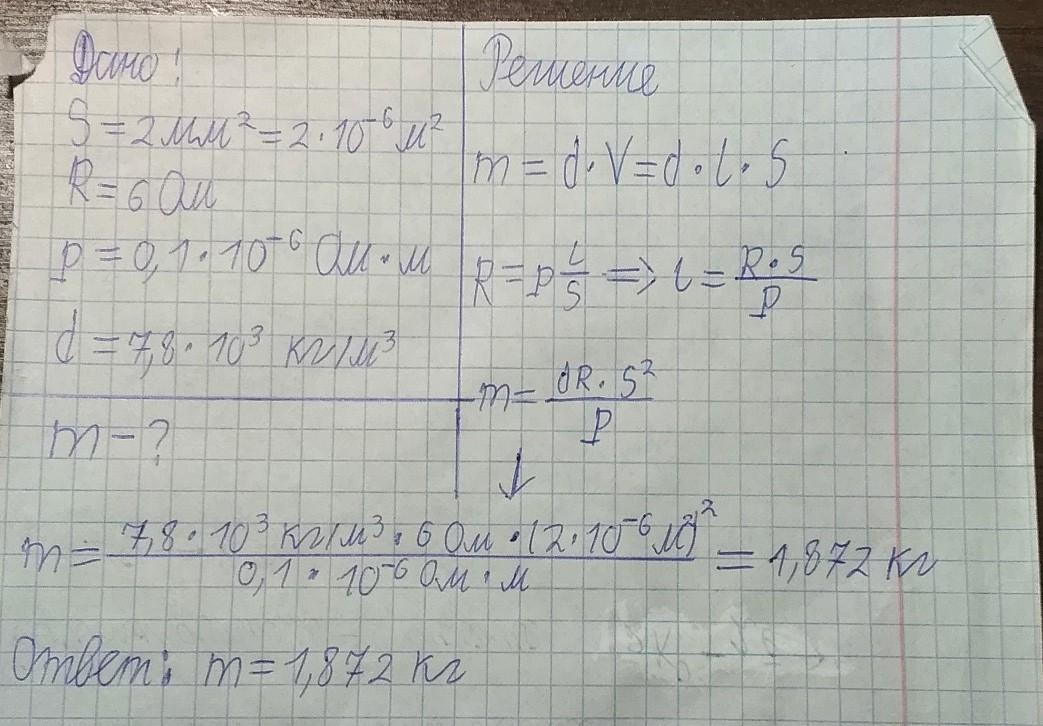 Дано:
S = 2 мм² = 2·10⁻⁶ м²
R = 6 Ом
p = 0,1·10⁻⁶ Ом·м
d = 7,8·10³ кг/м³
m – ?
Решение
m = d·V = d·l·S
R = p l/S ⇒ l = R·S/p
m = dR·S²/p
↓
m = 7,8·10³ кг/м³·6 Ом·(2·10⁻⁶ м²)²/0,1·10⁻⁶ Ом·м = 1,872 кг
Ответ: m = 1,872 кг